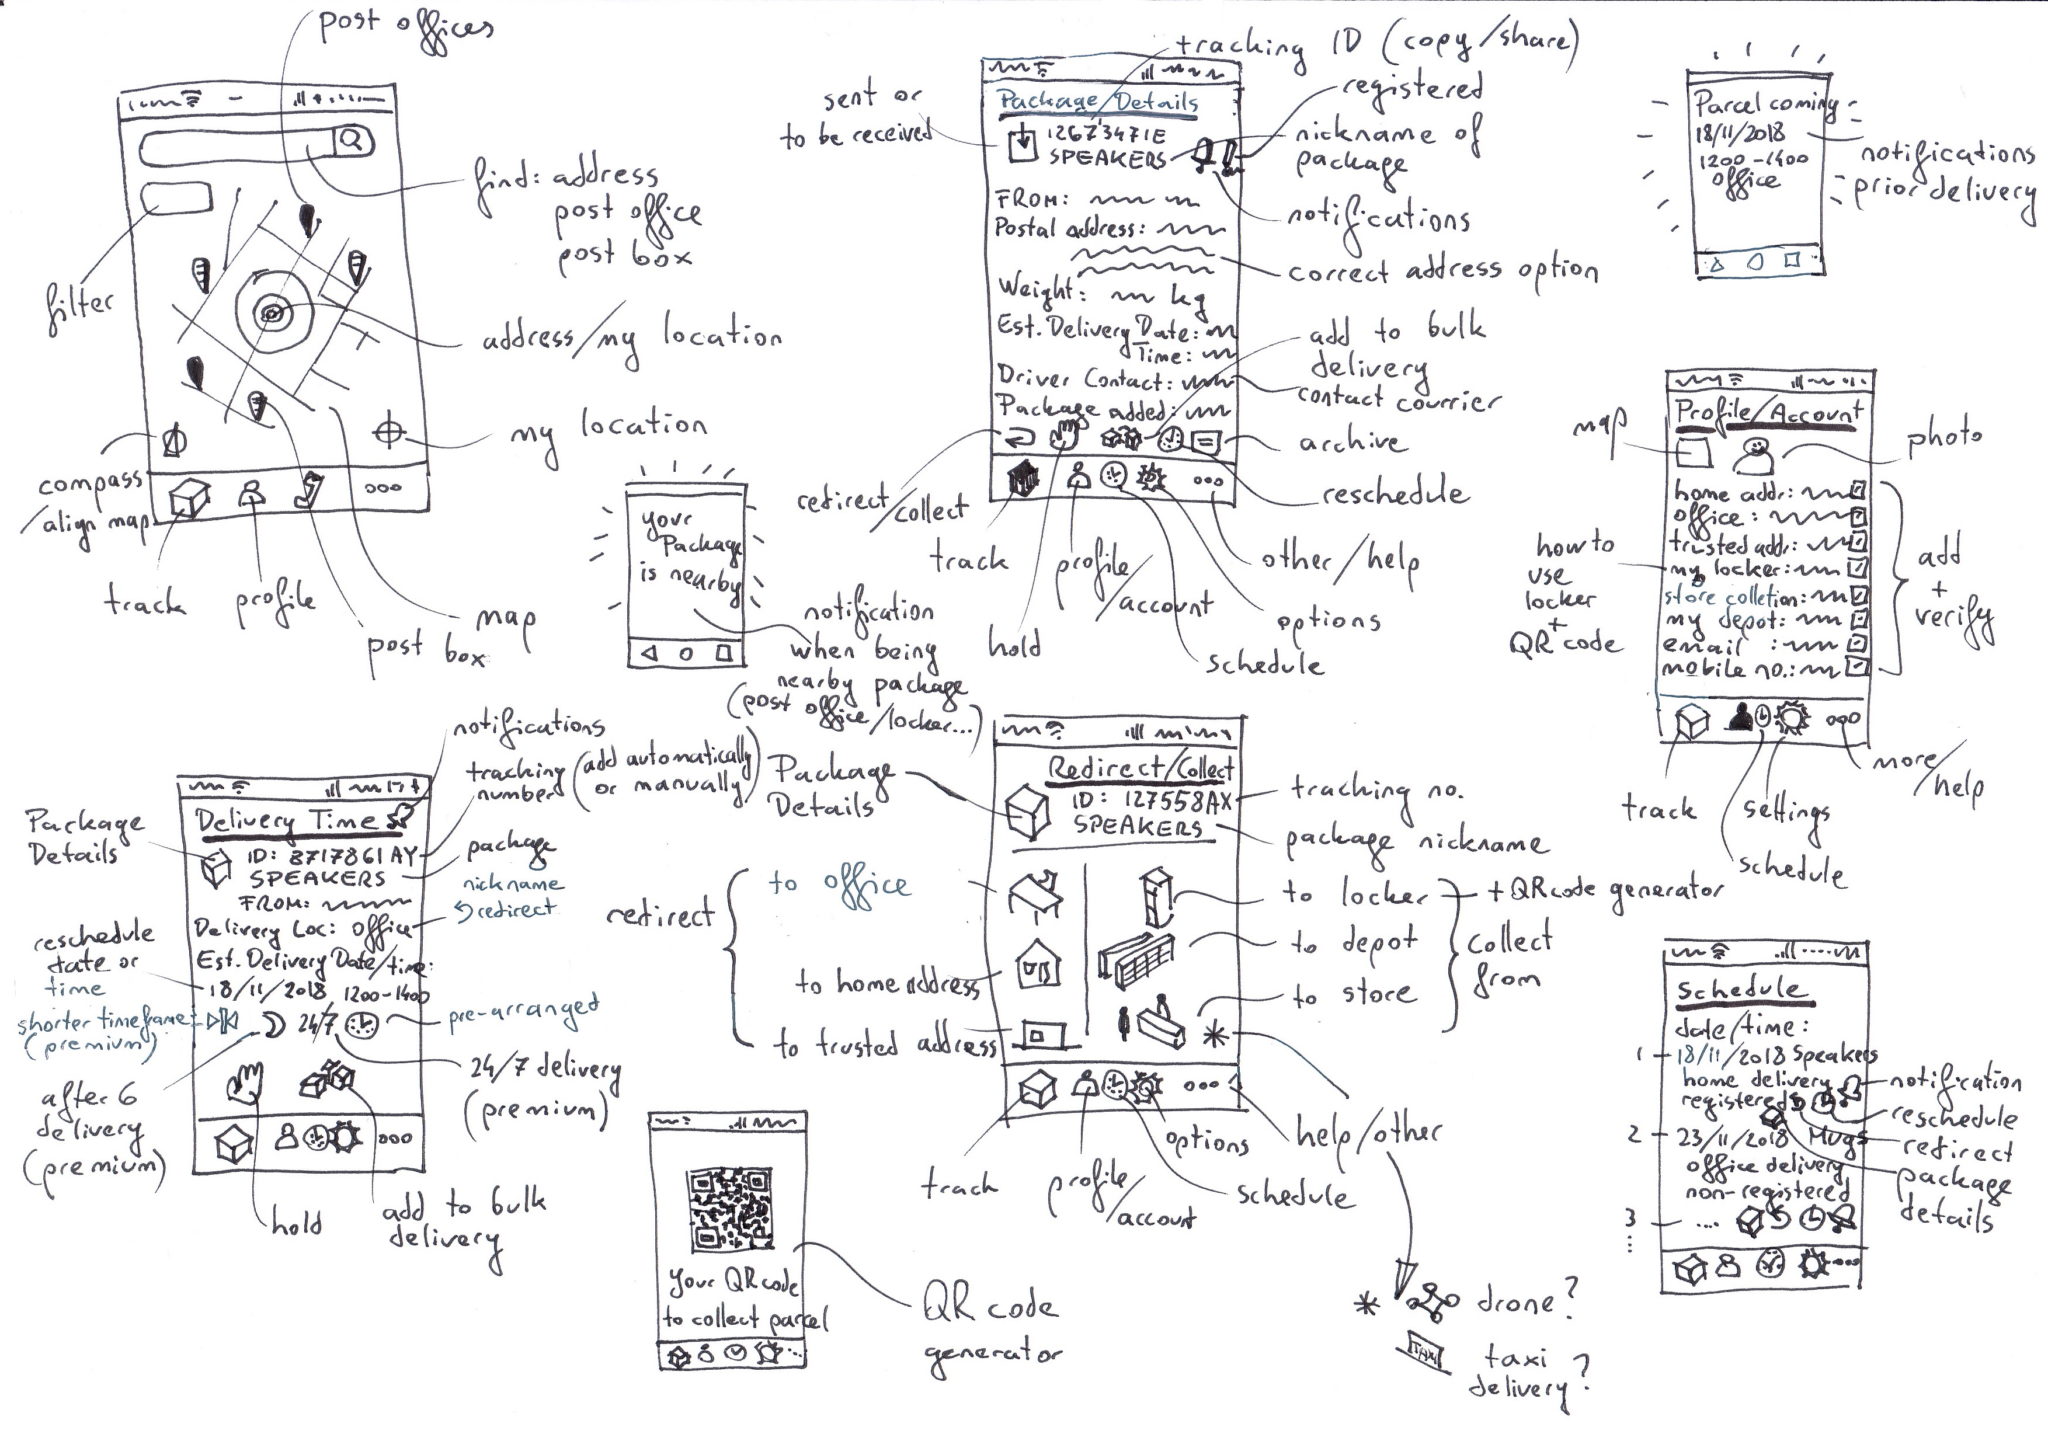 post offices
find: address
post office
post box
filter
address/my location
my location
compass
/align map
track
profile
post box
map
your
Package
is nearby
notification
when being
nearby package
(post office/locker...)
tracking ID (copy/share)
sent or
to be received
registered
nickname of
package
notifications
correct address option
add to bulk
delivery
contact courrier
archive
reschedule
redirect
/collect
track
profile
/account
other/help
options
hold
schedule
Package/Details
12673471E
SPEAKERS
FROM:
Postal address:
Weight: kg
Est. Delivery Date:
Time:
Driver Contact:
Package added:
Parcel coming
18/11/2018
1200-1400
office
notifications
prior delivery
Profile/Account
map
photo
home addr:
office:
trusted addr:
my locker:
store colletion:
my depot:
email :
mobile no.:
how to
use
locker
+
QR code
add
+
verify
track
settings
schedule
more
/help
notifications
tracking (add automatically
number or manually)
Package
Details
package
nickname
redirect
reschedule
date or
time
shorter timeframe
(premium)
after 6
delivery
(premium)
pre-arranged
24/7 delivery
(premium)
hold
add to bulk
delivery
Delivery Time
ID: 8717861 AY
SPEAKERS
FROM:
Delivery Loc: office
Est. Delivery Date/time:
18/11/2018 1200-1400
24/7
Your QR code
to collect parcel
QR code
generator
Package
Details
Redirect/Collect
ID: 127558AX
SPEAKERS
tracking no.
package nickname
redirect
to office
to home address
to trusted address
to locker
to depot
to store
+ QR code generator
collect
from
track
profile
/account
options
schedule
help/other
* drone?
TAXI
taxi
delivery?
Schedule
date/time:
1
18/11/2018 Speakers
home delivery
registered
2
23/11/2018 Mugs
office delivery
non-registered
3 ....
notification
reschedule
redirect
package
details